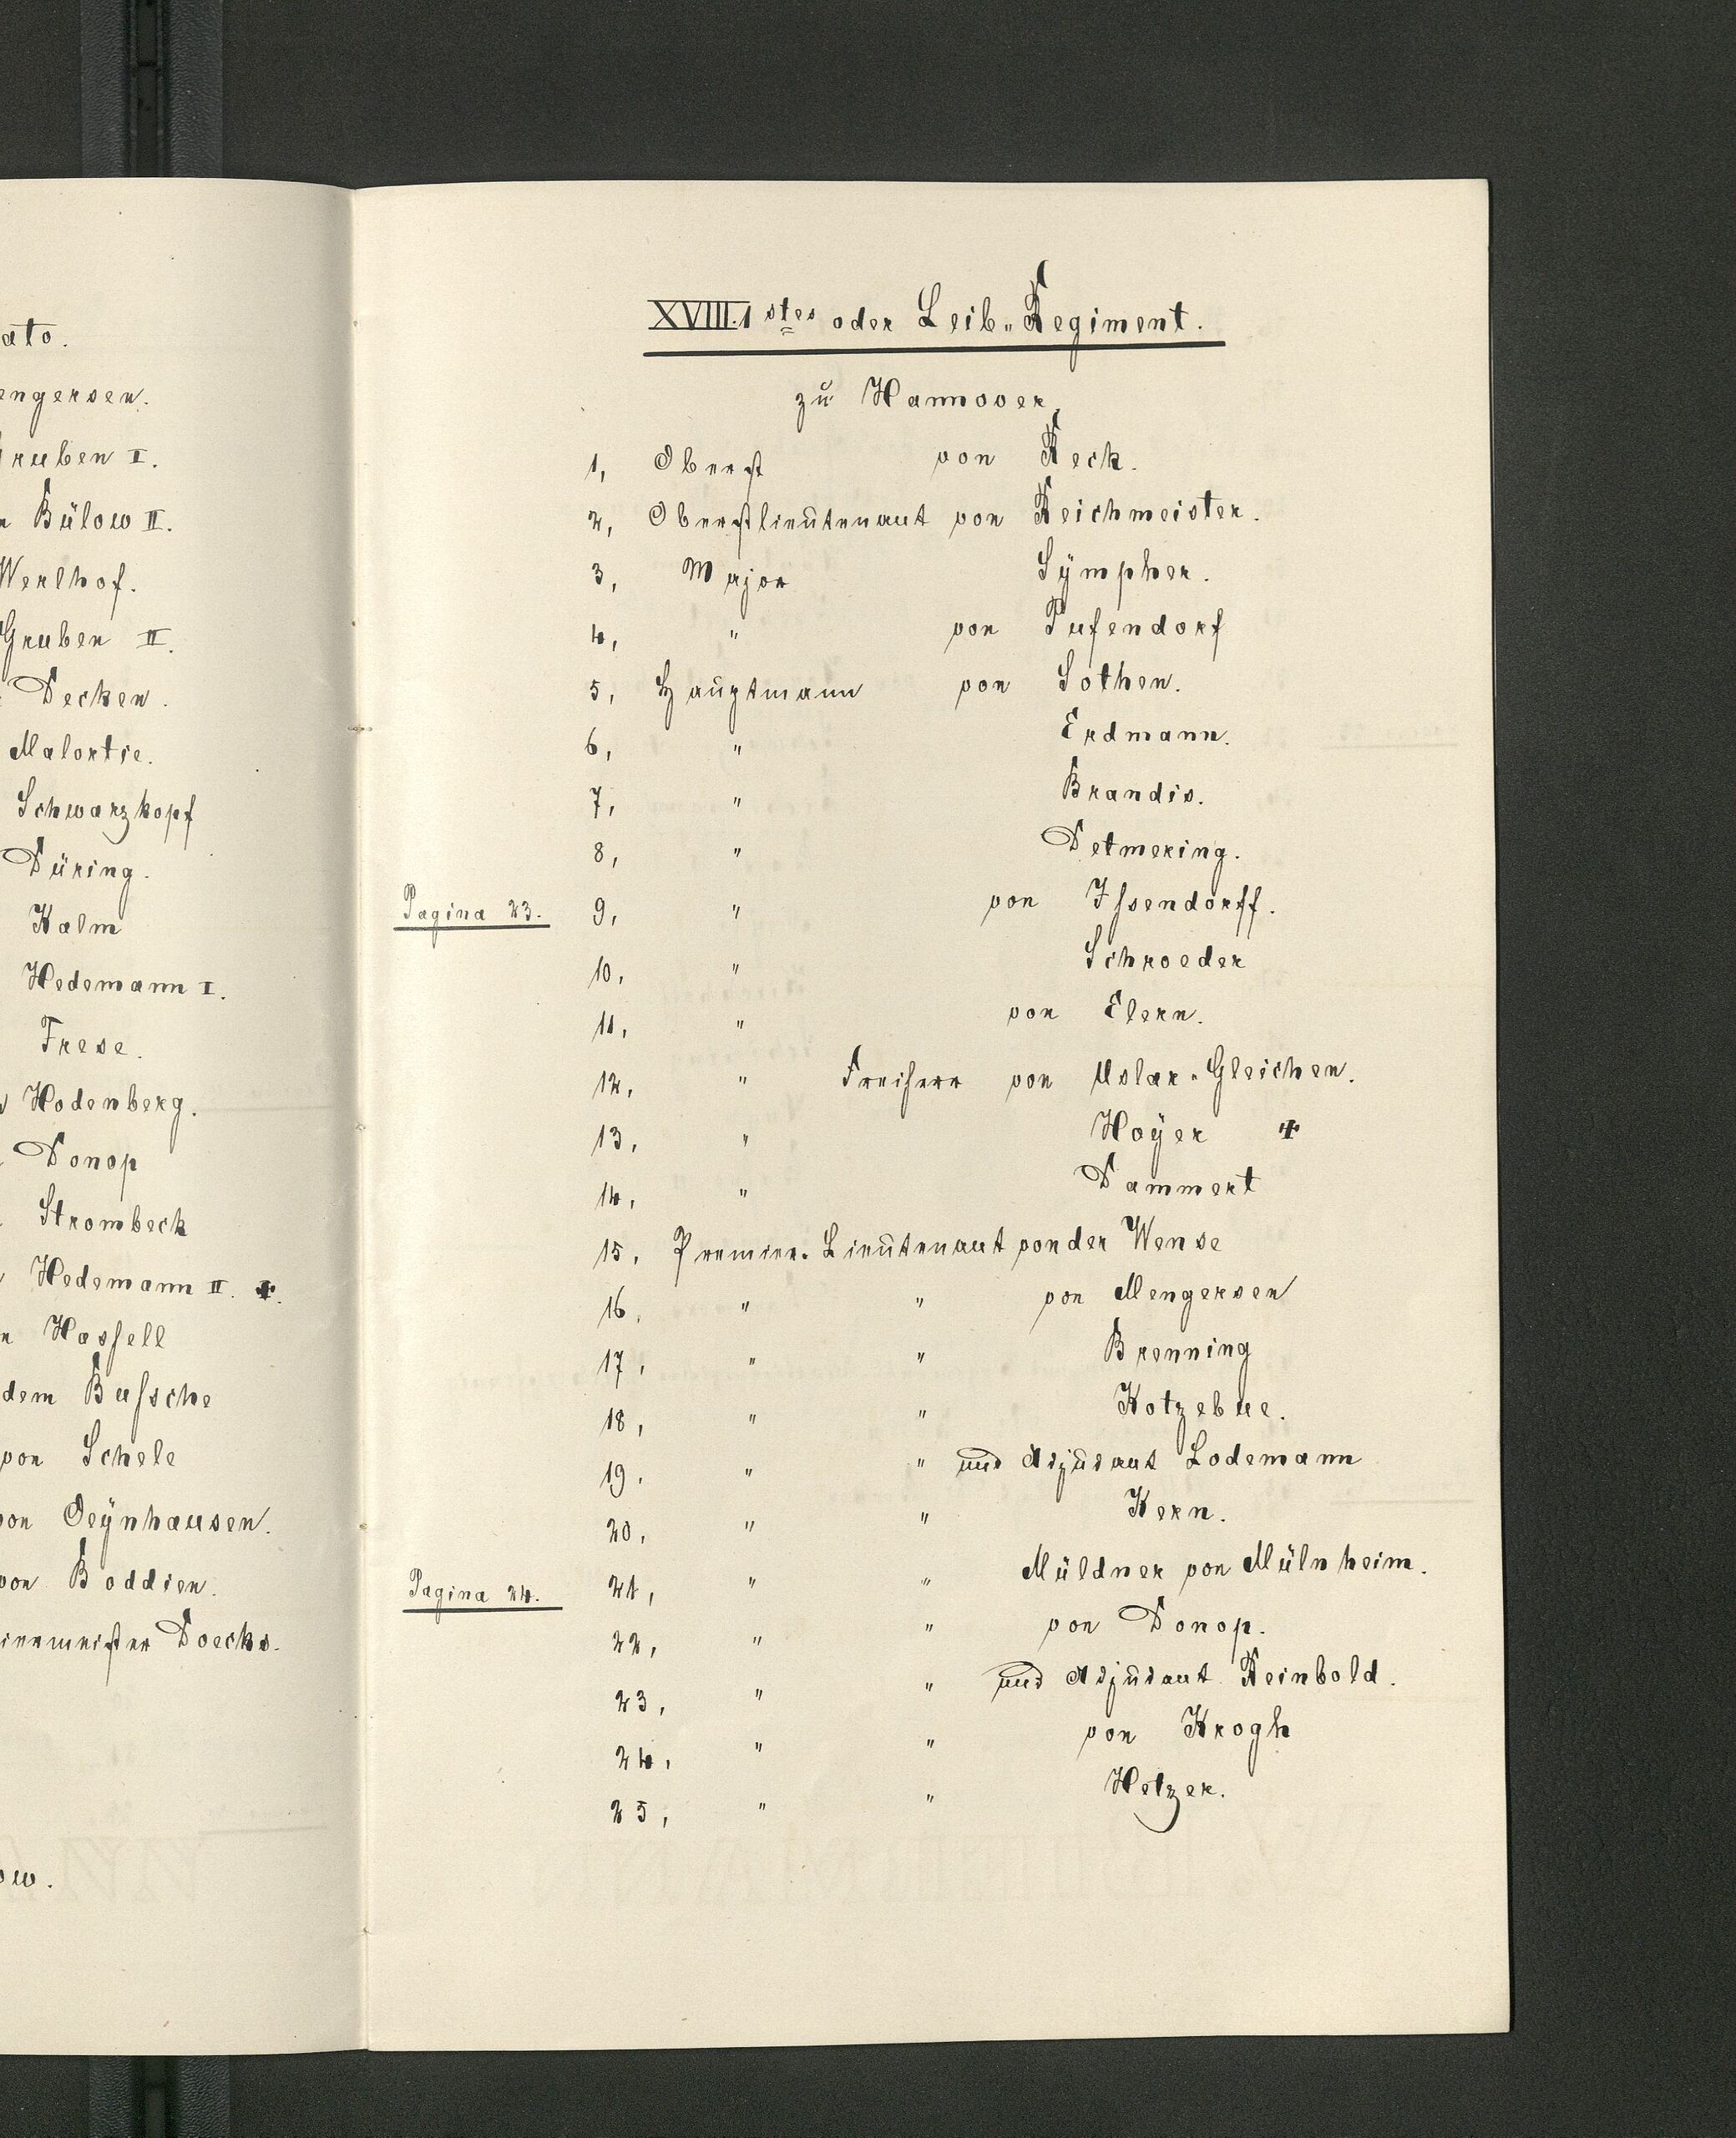 ato.
engersen.
ruben I.
n Bülow II.
Werlhof.
Gruben II.
Decken.
Malortie.
Schwarzkopf
Düring.
Kalm
Hedemann I.
Frese.
Hodenberg.
Donop
Strombeck
Hedemann II. +.
n Hasſell
dem Buſsche
von Schele
von Oeÿnhausen.
von Boddien.
iermeister Doecks.
ow.
XVIII. 1stes oder Leib-Regiment.
zu Hannover,
1, Oberst von Reck.
2, Oberstlieutenant von Reichmeister.
3, Major Sÿmpher.
4, " von Pufendorf
5, Hauptmann von Sothen.
6, " Erdmann.
7, " Brandis.
8, " Detmering.
Pagina 23. 9, " von Iſsendorff.
10, " Schroeder
11, " von Elern.
12, " Freiherr von Uslar-Gleichen.
13, " Hoÿer +
14, " Dammert
15, Premier-Lieutenant von der Wense
16, " " von Mengersen
17, " " Brenning
18, " " Kotzebue.
19, " " und Adjudant Lodemann
20, " " Kern.
Pagina 24. 21, " " Müldner von Mülnheim.
22, " " von Donop.
23, " " und Adjudant Reinbold.
24, " " von Krogh
25, " " Hetzer.